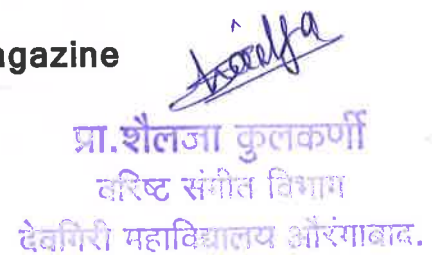 agazine
प्रा.शैलजा कुलकर्णी
वरिष्ट संगीत विभाग
देवगिरी महाविद्यालय औरंगाबाद.